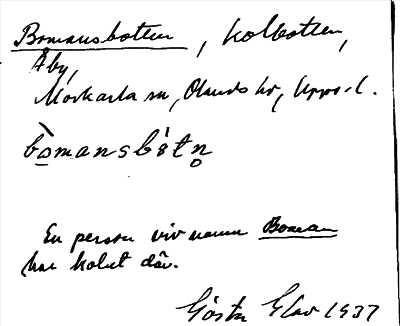 Bomansbotten, kolbotten,
Åby,
Morkarla sn, Olands hd, Upps. l.
bòmansbòtn̥
En person vid namn Boman
har kolat där.
Gösta Elav 1937